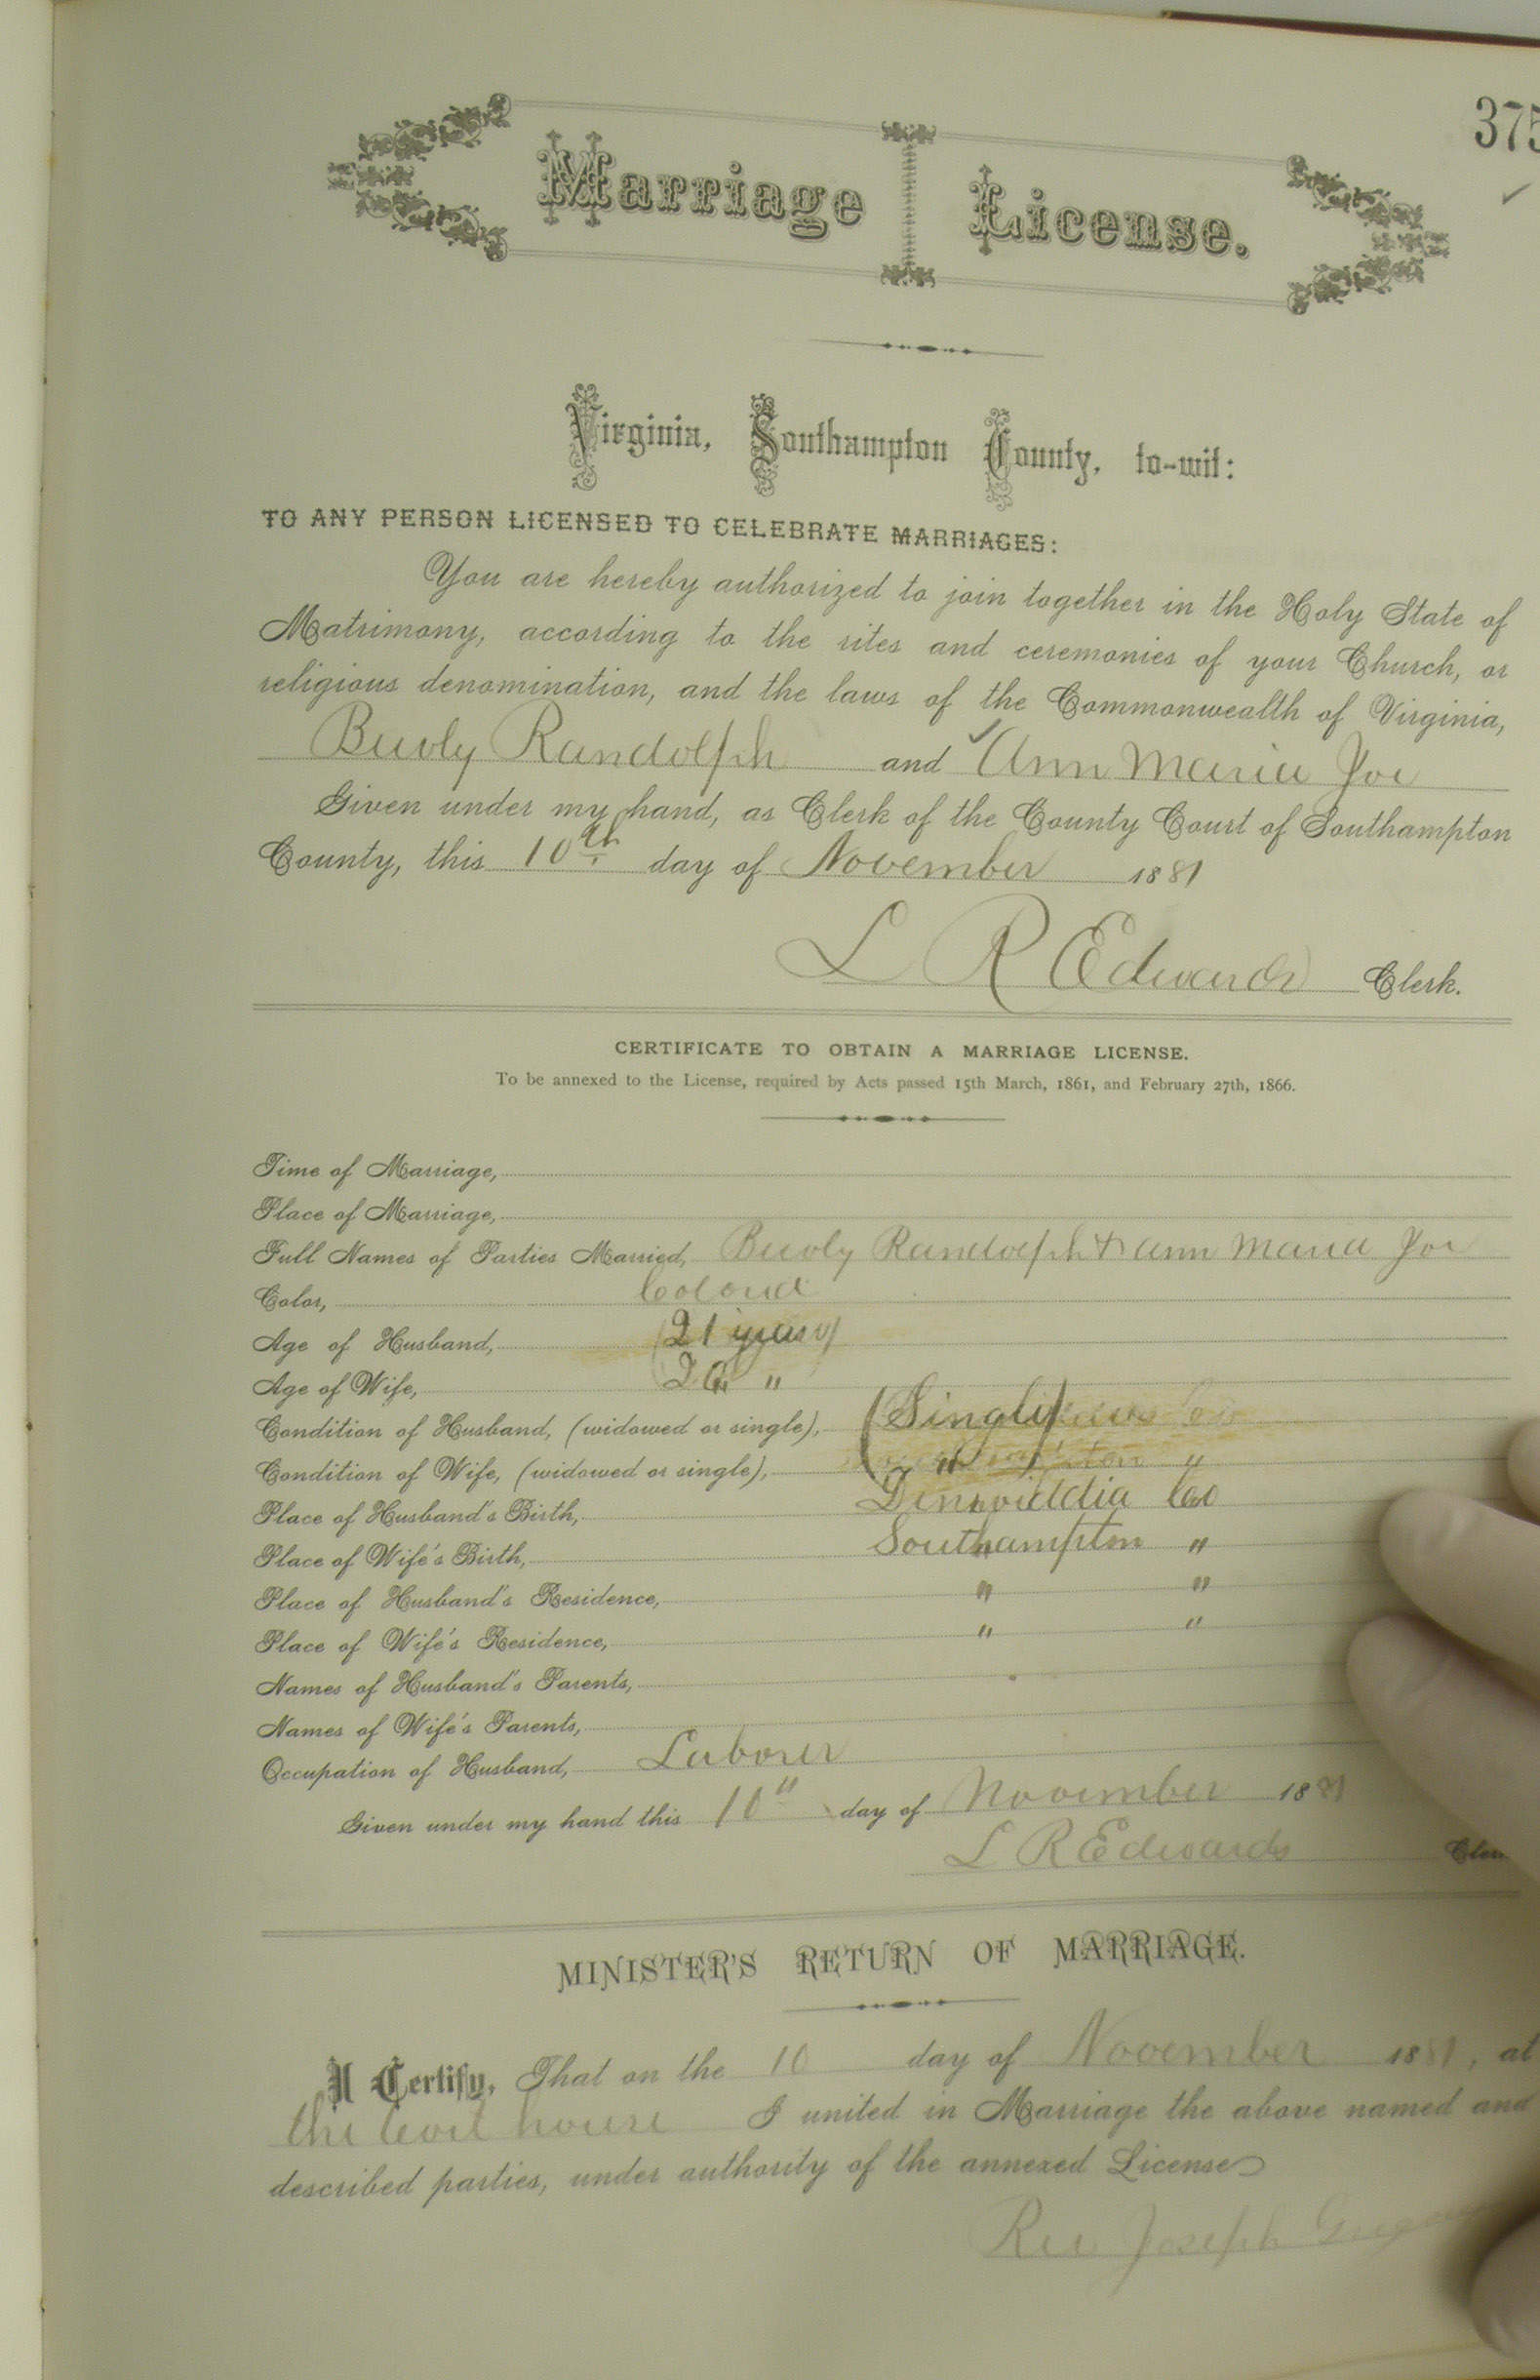 375
Marriage License.
Virginia, Southampton County, to-wit:
TO ANY PERSON LICENSED TO CELEBRATE MARRIAGES:
You are hereby authorized to join together in the Holy State of
Matrimony, according to the rites and ceremonies of your Church, or
religious denomination, and the laws of the Commonwealth of Virginia,
Buvly Randolph and Ann Maria Joe
Given under my hand, as Clerk of the County Court of Southampton
County, this 10th day of November 1881
L R Edwards Clerk.
CERTIFICATE TO OBTAIN A MARRIAGE LICENSE.
To be annexed to the License, required by Acts passed 15th March, 1861, and February 27th, 1866.
Time of Marriage,
Place of Marriage,
Full Names of Parties Married, Buvly Randolph & Ann Maria Joe
Color, Colored
Age of Husband, 21 years
Age of Wife, "
Condition of Husband, (widowed or single), Single
Condition of Wife, (widowed or single), "
Place of Husband's Birth, Dinwiddia Co
Place of Wife's Birth, Southampton "
Place of Husband's Residence, " "
Place of Wife's Residence, " "
Names of Husband's Parents,
Names of Wife's Parents,
Occupation of Husband, Laborer
Given under my hand this 10" day of November 1881
L R Edwards
MINISTER'S RETURN OF MARRIAGE.
I Certify, That on the 10 day of November 1881, at
the Cort house I united in Marriage the above named and
described parties, under authority of the annexed License
Rev Joseph